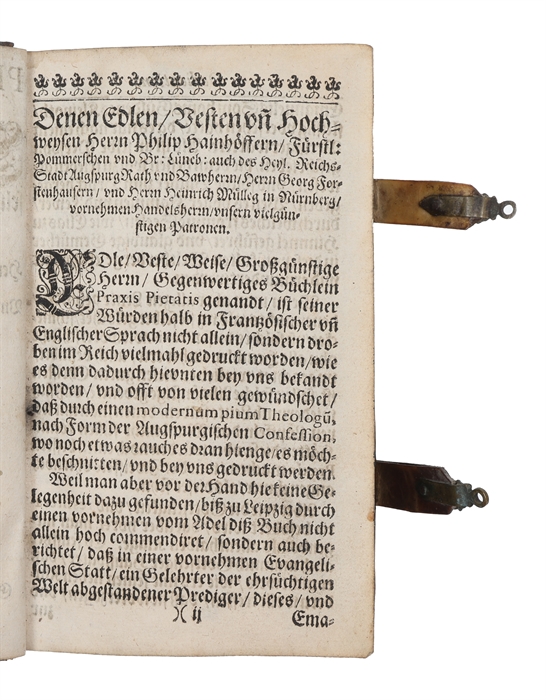 Denen Edlen/ Vesten vñ Hoch-
weysen Herrn Philip Hainhöffern/ Fürstl:
Pommerschen vnd Br: Lüneb: auch des Heyl. Reichs-
Stadt Augspurg Rath vnd Bawherrn/ Herrn Georg For-
stenhausern/ vnd Herrn Heinrich Mülleg in Nürnberg/
vornehmen Handelsherrn/ vnsern vielgün-
stigen Patronen.
EDle/ Veste/ Weise/ Großgünstige
Herrn/ Gegenwertiges Büchlein
Praxis Pietatis genandt/ ist seiner
Würden halb in Frantzösischer vñ
Englischer Sprach nicht allein/ sondern dro-
ben im Reich vielmahl gedruckt worden/ wie
es denn dadurch hievnten bey vns bekandt
worden/ vnd offt von vielen gewündschet/
daß durch einen modernum pium Theologū,
nach Form der Augspurgischen Confession,
wo noch etwas rauches dran hienge/ es möch-
te beschnitten/ vnd bey vns gedruckt werden.
Weil man aber vor der Hand hie keine Ge-
legenheit dazu gefunden/ biß zu Leipzig durch
einen vornehmen vom Adel diß Buch nicht
allein hoch commendiret/ sondern auch be-
richtet/ daß in einer vornehmen Evangeli-
schen Statt/ ein Gelehrter der ehrsüchtigen
Welt abgestandener Prediger/ dieses/ vnd
)( ij Ema-